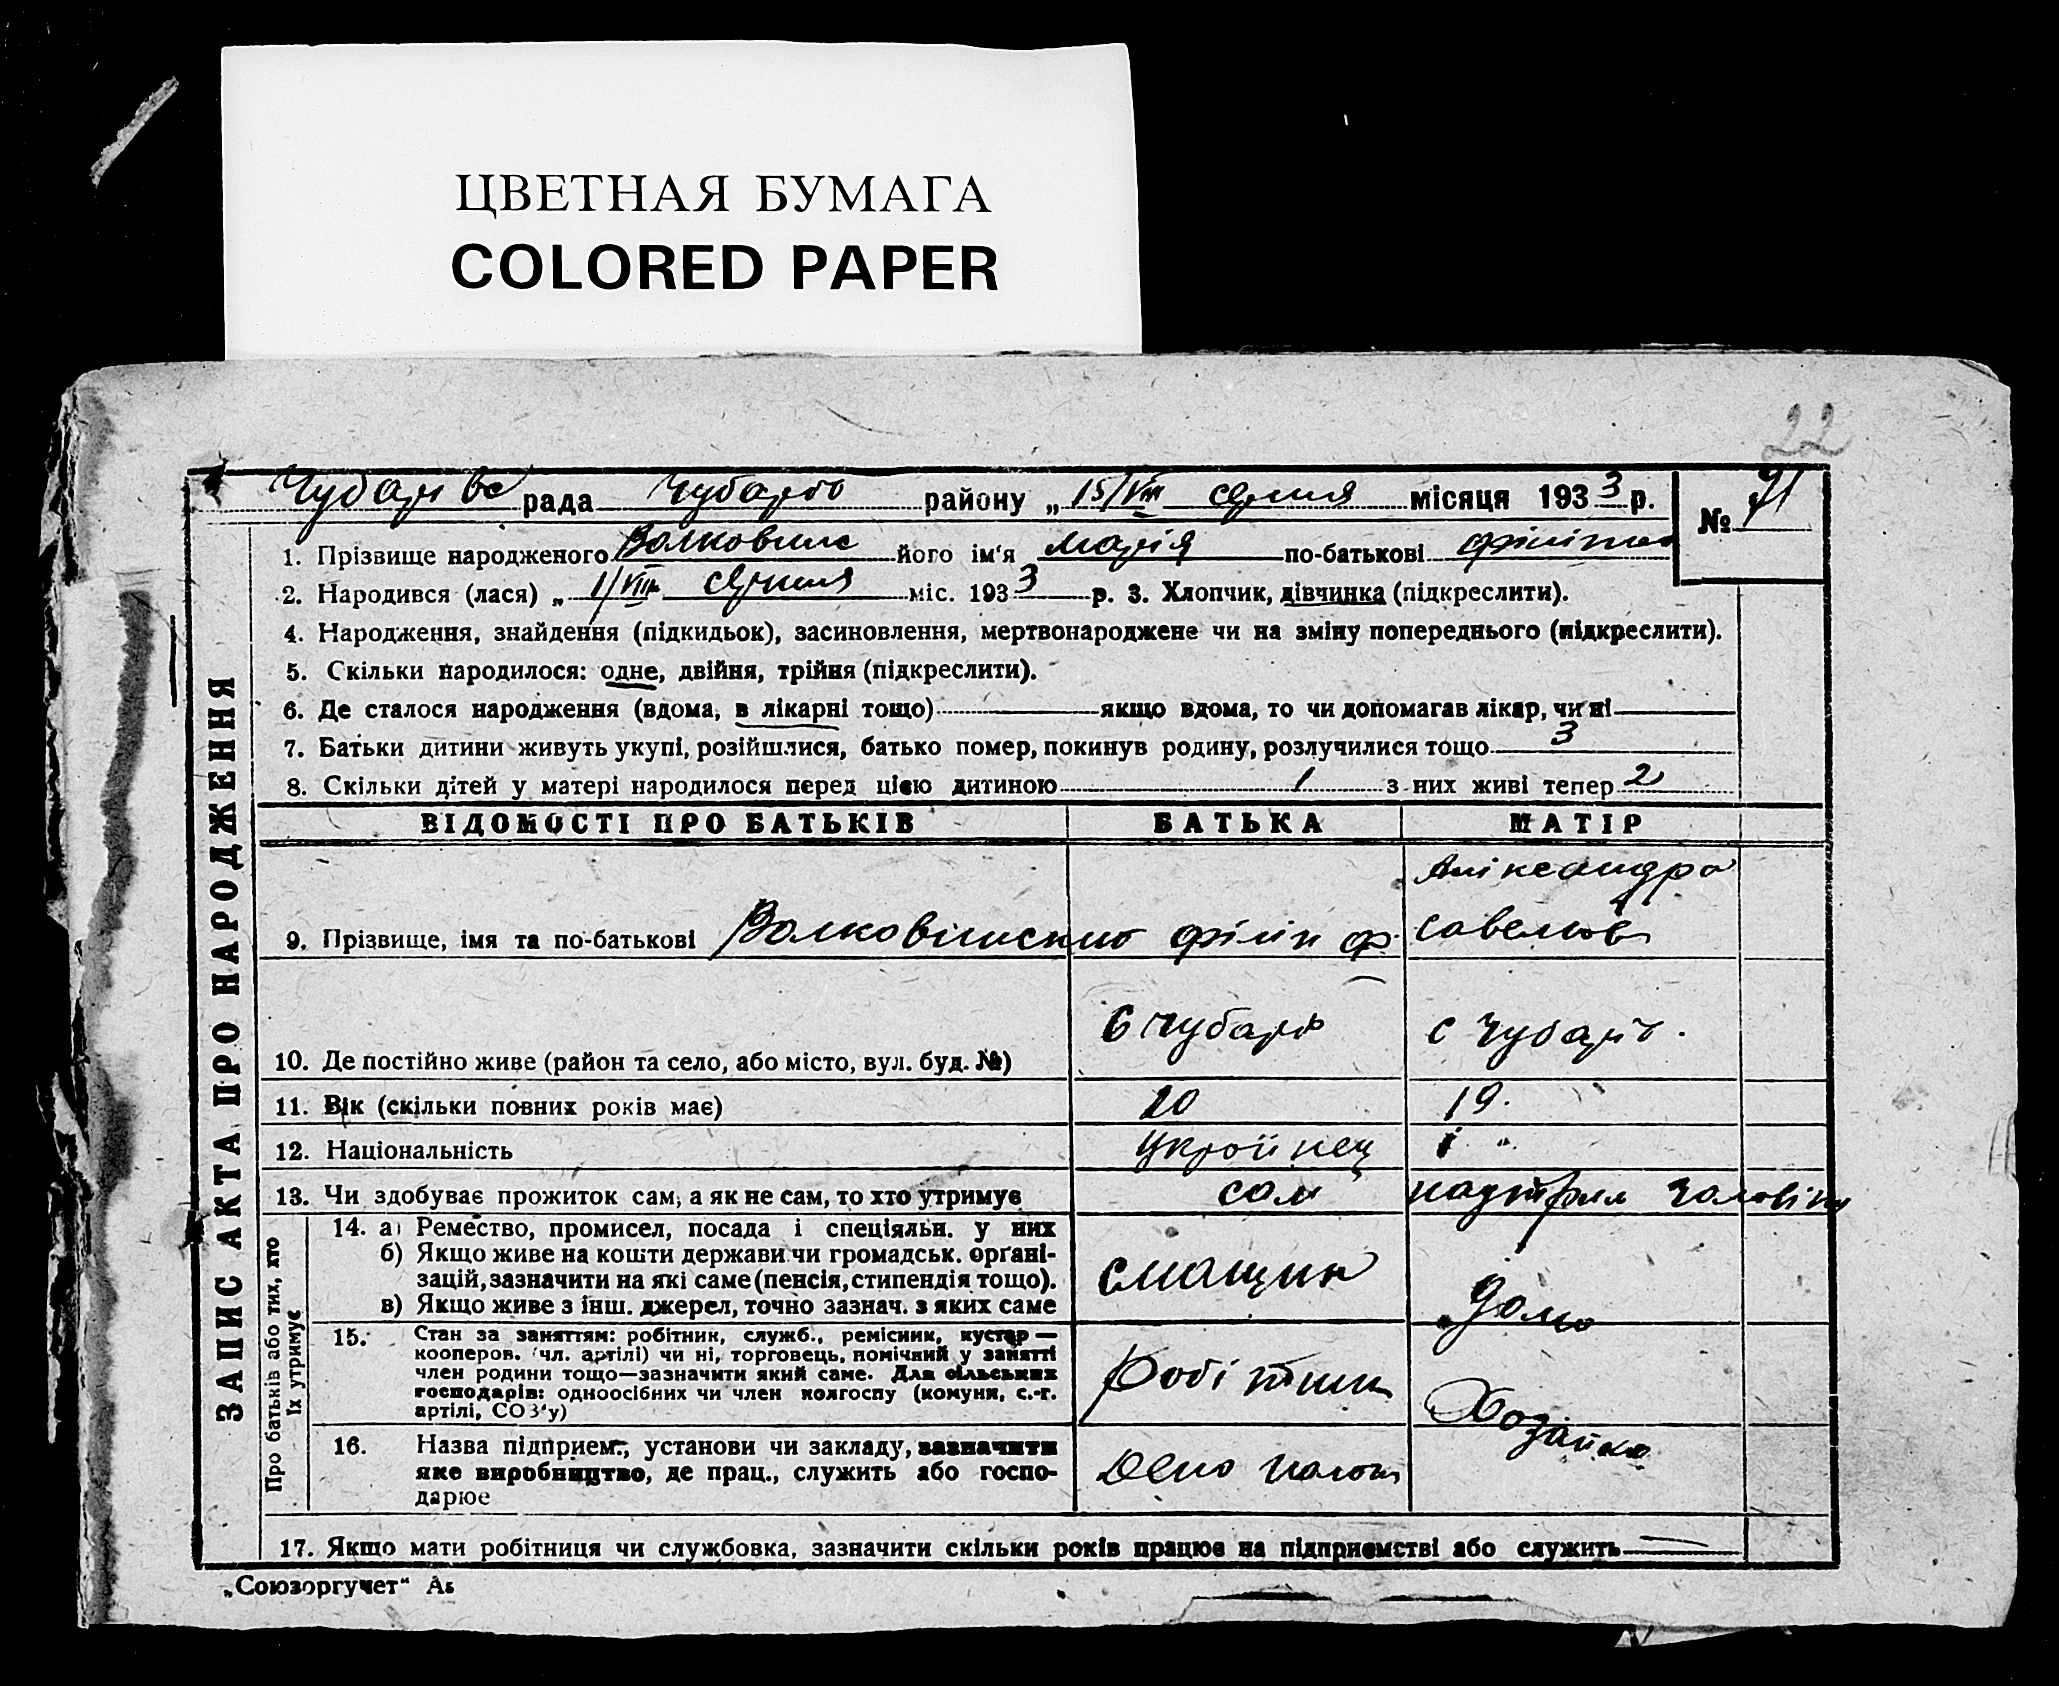 ЦВЕТНАЯ БУМАГА
COLORED PAPER
22
рада Чубарів району „ 15/VIII серпня місяця 1933 р.
№ 71
1. Прізвище народженого його ім'я Марія по-батькові
2. Народився (лася) „ 1/VIII серпня міс. 1933 р. 3. Хлопчик, дівчинка (підкреслити).
4. Народження, знайдення (підкидьок), засиновлення, мертвонароджене чи на зміну попереднього (підкреслити).
5. Скільки народилося: одне, двійня, трійня (підкреслити).
6. Де сталося народження (вдома, в лікарні тощо) якщо вдома, то чи допомагав лікар, чи ні
7. Батьки дитини живуть укупі, розійшлися, батько помер, покинув родину, розлучилися тощо 3
8. Скільки дітей у матері народилося перед цією дитиною 1 з них живі тепер 2
ЗАПИС АКТА ПРО НАРОДЖЕННЯ
ВІДОМОСТІ ПРО БАТЬКІВ БАТЬКА МАТІР
9. Прізвище, імя та по-батькові Філіп Ф.
10. Де постійно живе (район та село, або місто, вул. буд. №) с Чубарів с Чубарів.
11. Вік (скільки повних років має) 20 19.
12. Національність Украйнец і "
13. Чи здобуває прожиток сам, а як не сам, то хто утримує сам
Про батьків або тих, хто їх утримує
14. а) Ремество, промисел, посада і спеціяльн. у них
б) Якщо живе на кошти держави чи громадськ. органі-
зацій, зазначити на які саме (пенсія, стипендія тощо).
в) Якщо живе з інш. джерел, точно зазнач. з яких саме
смащик Домо
15. Стан за заняттям: робітник, служб., ремісник, кустар —
кооперов. (чл. артілі) чи ні, торговець, помічний у занятті
член родини тощо—зазначити який саме. Для сільських
господарів: одноосібних чи член колгоспу (комуни, с.-г.
артілі, СОЗ'у)
Робітник Хозайка
16. Назва підприєм., установи чи закладу, зазначити
яке виробництво, де прац., служить або госпо-
дарює
Депо
17. Якщо мати робітниця чи службовка, зазначити скільки років працює на підприємстві або служить
„Союзоргучет"